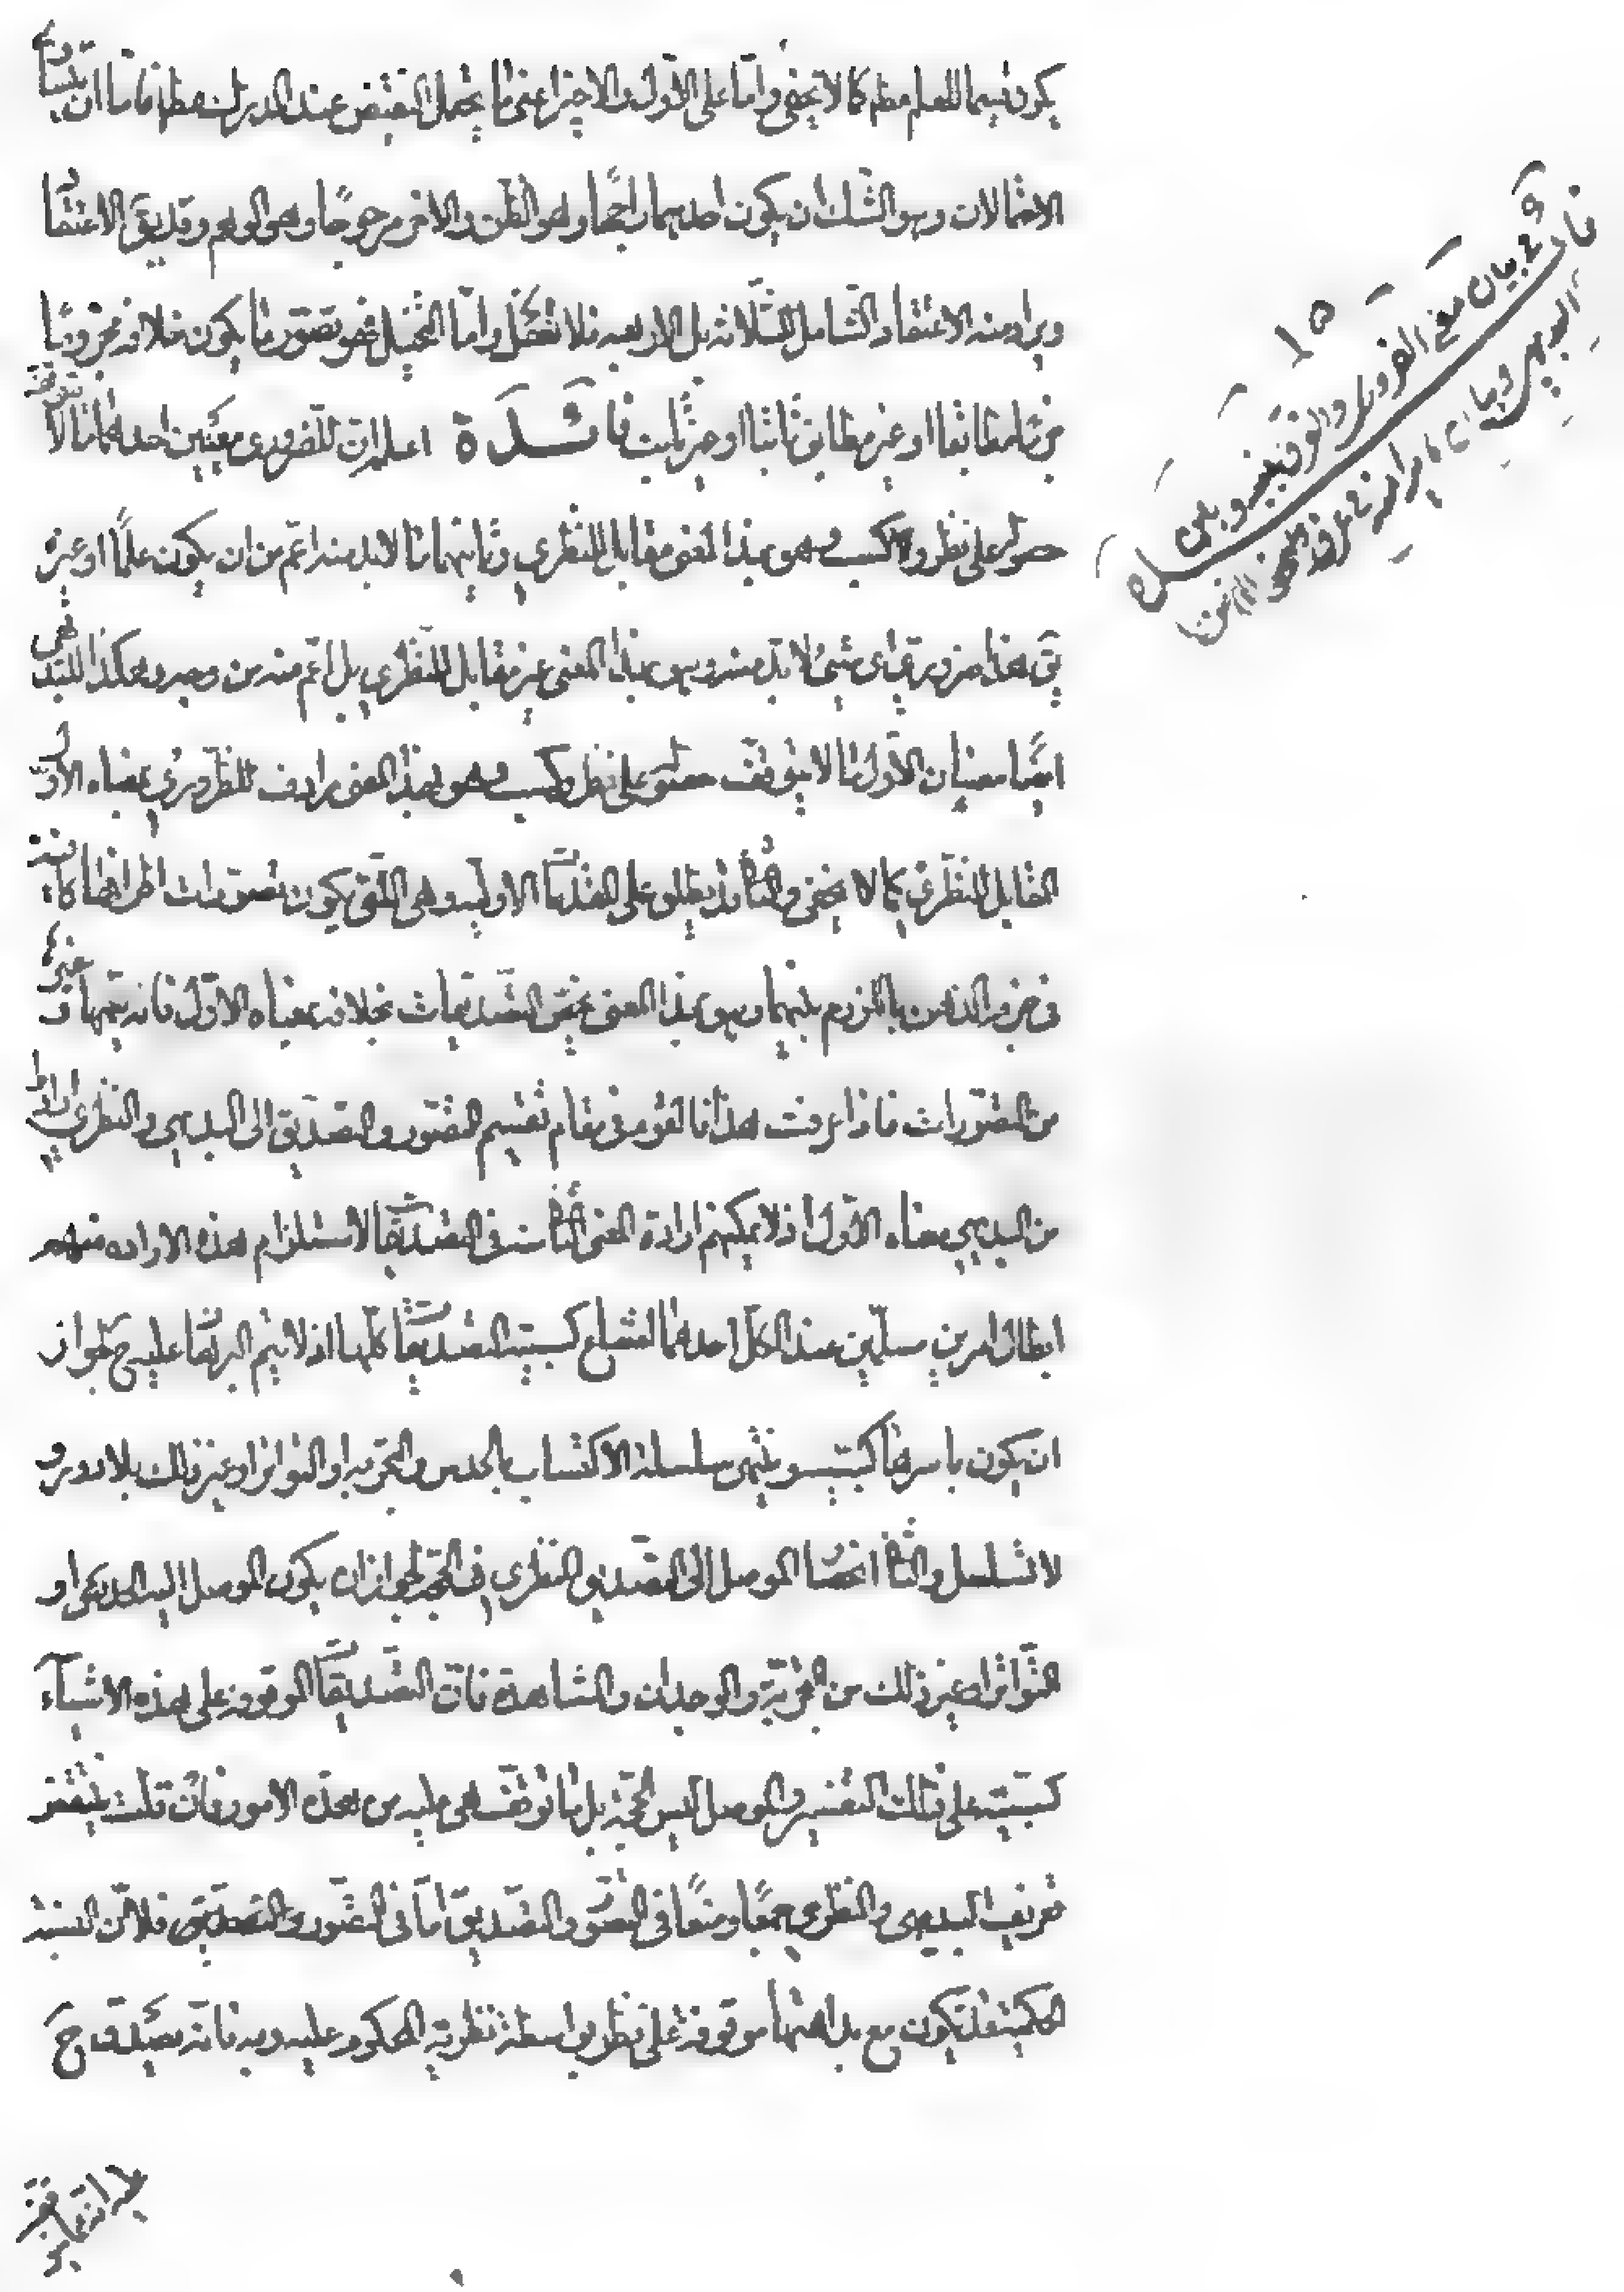 يكون قسيما للعلم مطلقا كما لا يخفى واما على الاول والاخير اعنى ما يحتمل النقيض عند المدرك مطلقا فاما ان يتساوى
الاحتمالات وهو الشك او يكون احديهما راجحا وهو الظن والاخر مرجوحا وهو الوهم وقد يق الاعتقاد
ويراد منه الاعتقاد الشامل للثلاثه بل الاربعه فلا تغفل واما التخييل فهو تصور ما يكون خلافه مجزوما
من مطابقا او غير مطابق ثابتا او غير ثابت فائدة اعلم ان للضرورى معنيين احدهما ما لا يتوقف
حصوله على نظر وكسب وهو بهذا المعنى مقابل للنظري وثانيهما ما لا بد منه اعم من ان يكون علما او غيره
يق هذا ضروري اى شيء لا بد منه وهو بهذا المعنى غير مقابل للنظري بل اعم منه من وجه وهكذا للبديهى
ايضا معنيان الاول ما لا يتوقف حصوله على نظر وكسب وهو بهذا المعنى مرادف للضروري بمعناه الاول
المقابل للنظرى كما لا يخفى والثانى يطلق على المقدمات الاوليه وهى التى يكون تصورات اطرافها كافيه
فى جزم الذهن باللزوم بينهما وهو بهذا المعنى يختص التصديقات بخلافه بمعناه الاول فانه يعمها وغيرها
من التصورات فاذا عرفت هذا فالقوم فى مقام تقسيم التصور والتصديق الى البديهى والنظري ارادوا
من البديهي معناه الاول اذ لا يمكنهم ارادة المعنى الثانى منه فى التصديقات لاستلزام هذه الاراده منهم
ابطال امرين مسلمين عند الكل احدهما امتناع كسبية التصديقات كلها اذ لا يتم البرهان عليه ح لجواز
ان يكون باسرها كسبيه وينتهى سلسلة الاكتساب بالحدس والتجربه او التواتر او غير ذلك بلا دور و
لا تسلسل والثانى انحصار الموصل الى التصديق النظري فى الحجة لجواز ان يكون الموصل اليه الحدس او
التواتر او غير ذلك من التجربة والوجدان والمشاهدة فان التصديقات الموقوفه على هذه الاشياء
كسبية على ذلك التفسير والموصل ليس الحجة بل ما توقف هى عليه من هذه الامور فان قلت ينتقض
تعريف البديهى والنظرى جمعا ومنعا فى التصور والتصديق اما فى التصور والتصديق فلان النسبة
الحكمية قد تكون مع بداهتها موقوفة على نظر بواسطة نظرية المحكوم عليه وبه فانه يصدق ح
فائدة فى بيان معنى الضرورى والفرق بينه وبين
البديهى وبيان